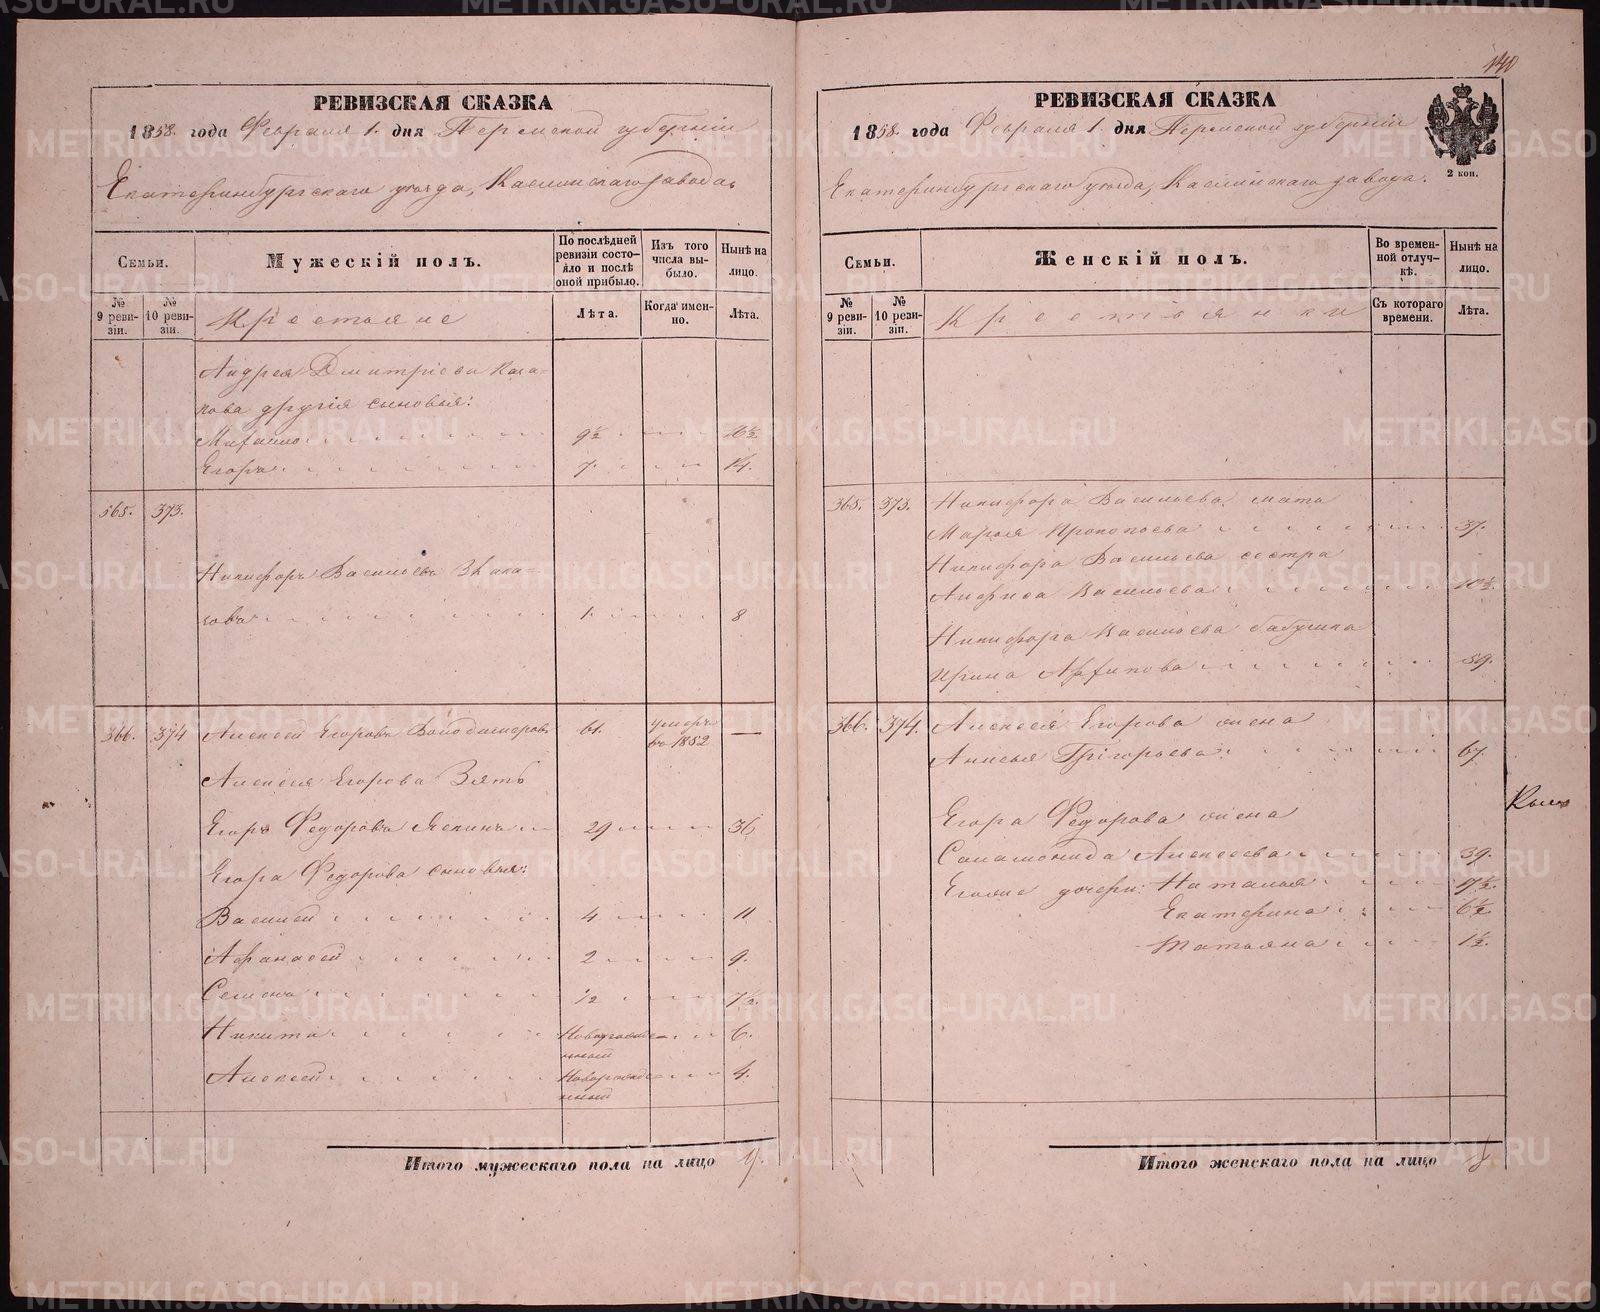 140
РЕВИЗСКАЯ СКАЗКА
1858. года Февраля 1. дня Пермской губерніи
Екатеринбургскаго уѣзда, Каслинскаго завода.
Семьи.
Мужескій полъ.
По послѣдней ревизіи состояло и послѣ оной прибыло.
Изъ того числа выбыло.
Нынѣ на лицо.
№ 9 ревизіи.
№ 10 ревизіи.
Крестьяне
Лѣта.
Когда именно.
Лѣта.
Андрея Дмитріева
другія сыновья:
Михайло 9½ 16½
Егоръ 7. 14.
365. 373.
Никифоръ Васильевъ
1. 8
366. 374 Алексей Егоровъ 61. умеръ —
въ 1852
Алексея Егорова Зять
Егоръ Федоровъ 29 36
Егора Федорова сыновья:
Василей 4 11
Афанасей 2 9.
Семенъ ½ 7½.
Никита Новорожде- 6.
нный
Алексей Новорожде- 4.
нный
Итого мужескаго пола на лицо 9.
РЕВИЗСКАЯ СКАЗКА
1858. года Февраля 1. дня Пермской губерніи
Екатеринбургскаго уѣзда, Каслинскаго завода.
2 коп.
Семьи.
Женскій полъ.
Во временной отлучкѣ.
Нынѣ на лицо.
№ 9 ревизіи.
№ 10 ревизіи.
Крестьянки
Съ котораго времени.
Лѣта.
365. 373. Никифора Васильева мать
Марья Прокопьева 37.
Никифора Васильева сестра
Анфиса Васильева 10½.
Никифора Васильева бабушка
Ирина 59.
366. 374. Алексея Егорова жена
Анисья Григорьева 67.
Егора Федорова жена
Саламонида Алексеева 39.
дочери: Наталья 17½.
Екатерина 6½
Татьяна 1½.
Итого женскаго пола на лицо 8.
METRIKI.GASO-URAL.RU